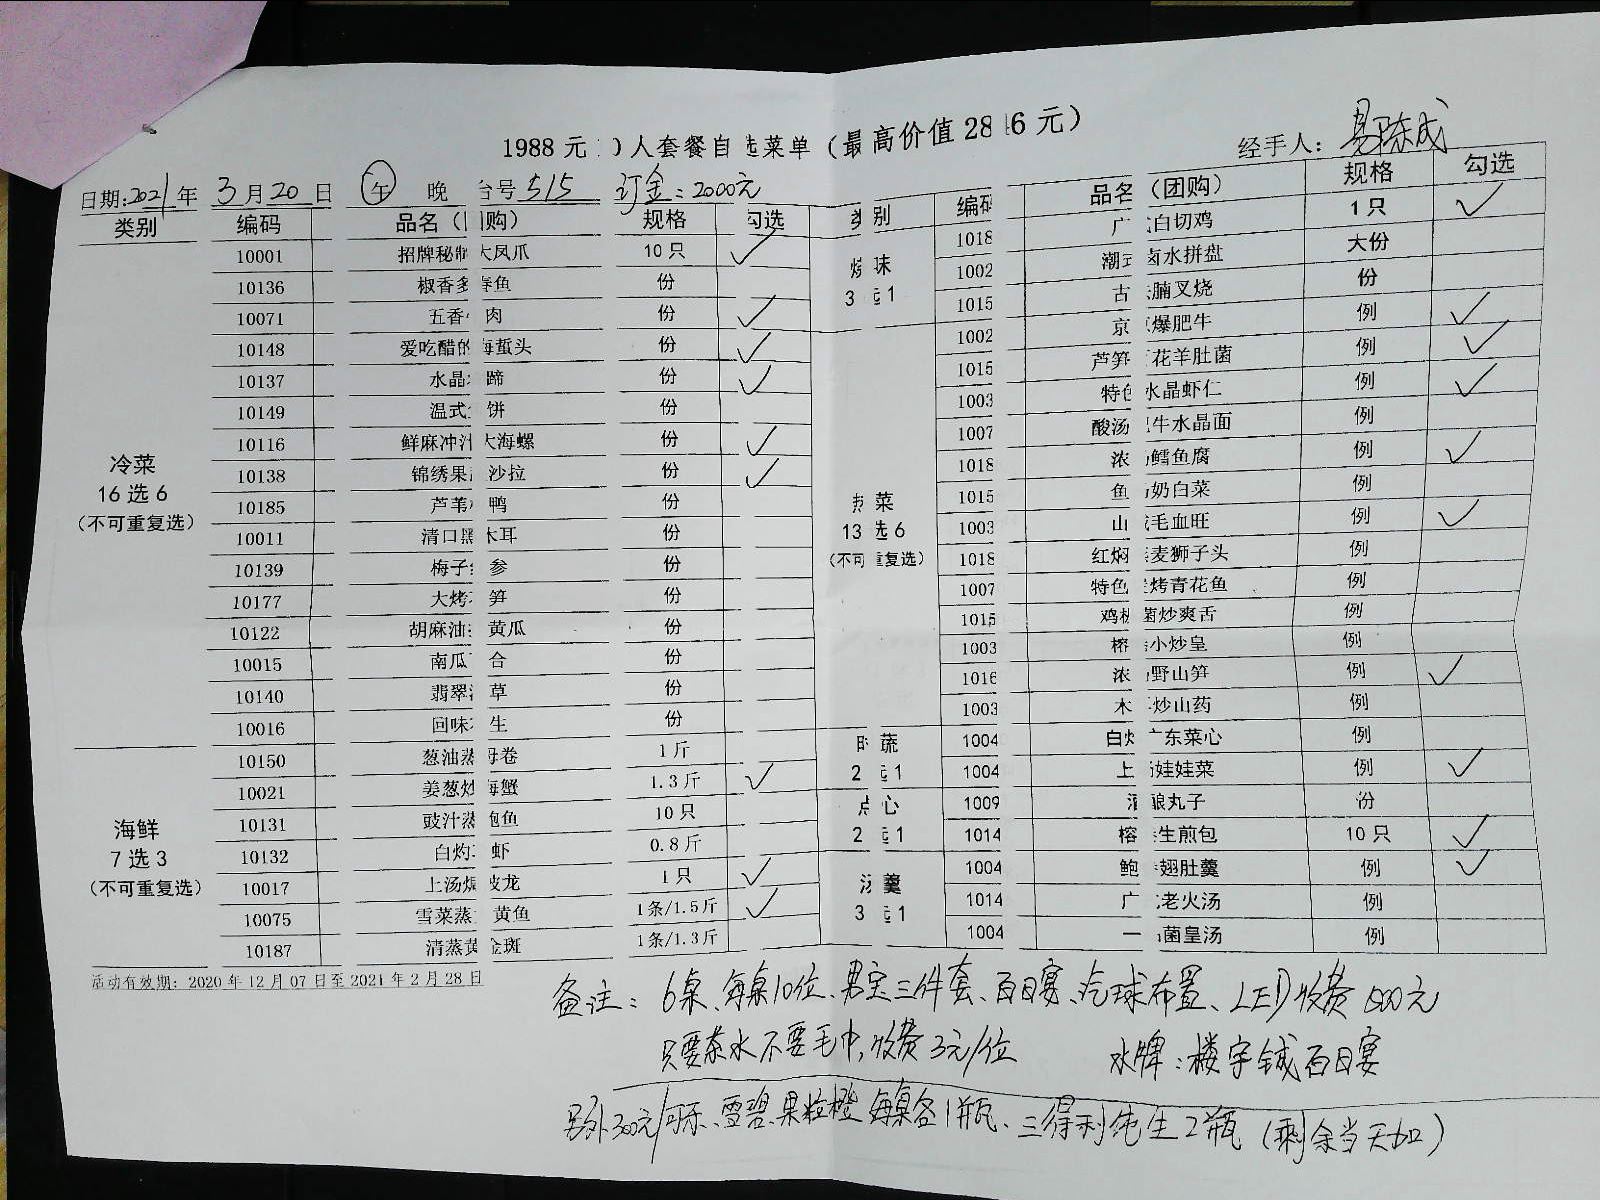 1988 元 0 人套餐自选菜单（最高价值 28 6 元）
经手人：
日期:2021年 3月20日 午 晚 台号 515 订金：2000元
类别 编码 品名（团购） 规格 勾选 类别 编码 品名（团购） 规格 勾选
冷菜
16 选 6
（不可重复选）
10001 招牌秘制大凤爪 10 只 ✓
10136 椒香多春鱼 份
10071 五香 肉 份 ✓
10148 爱吃醋的海蜇头 份 ✓
10137 水晶 蹄 份 ✓
10149 温式 饼 份
10116 鲜麻冲汁大海螺 份 ✓
10138 锦绣果 沙拉 份 ✓
10185 芦苇 鸭 份
10011 清口黑木耳 份
10139 梅子 参 份
10177 大烤 笋 份
10122 胡麻油 黄瓜 份
10015 南瓜 合 份
10140 翡翠 草 份
10016 回味 生 份
海鲜
7 选 3
（不可重复选）
10150 葱油蒸 卷 1 斤
10021 姜葱炒海蟹 1.3 斤 ✓
10131 豉汁蒸鲍鱼 10 只
10132 白灼 虾 0.8 斤
10017 上汤焗波龙 1 只 ✓
10075 雪菜蒸 黄鱼 1条/1.5斤 ✓
10187 清蒸黄金斑 1条/1.3斤
烧味
3 选 1
1018 广 白切鸡 1 只 ✓
1002 潮式卤水拼盘 大份
1015 古 腩叉烧 份
热菜
13 选 6
（不可重复选）
1002 京 爆肥牛 例 ✓
1015 芦笋 花羊肚菌 例 ✓
1003 特色水晶虾仁 例 ✓
1007 酸汤肥牛水晶面 例
1018 浓汤鳕鱼腐 例 ✓
1015 鱼汤奶白菜 例
1003 山城毛血旺 例 ✓
1018 红焖 麦狮子头 例
1007 特色 烤青花鱼 例
1015 鸡枞菌炒爽舌 例
1003 榕 小炒皇 例
1016 浓汤野山笋 例 ✓
1003 木耳炒山药 例
时蔬
2 选 1
1004 白灼广东菜心 例
1004 上汤娃娃菜 例 ✓
点心
2 选 1
1009 酒酿丸子 份
1014 榕 生煎包 10 只 ✓
汤羹
3 选 1
1004 鲍 翅肚羹 例 ✓
1014 广式老火汤 例
1004 一品菌皇汤 例
活动有效期：2020 年 12 月 07 日至 2021 年 2 月 28 日
备注：6桌、每桌10位、男宝三件套、百日宴、汽球布置、LED收费500元
只要茶水不要毛巾，收费3元/位 水牌：楼宇铖百日宴
另外300元/可乐、雪碧、果粒橙每桌各1瓶、三得利纯生2瓶（剩余当天加）